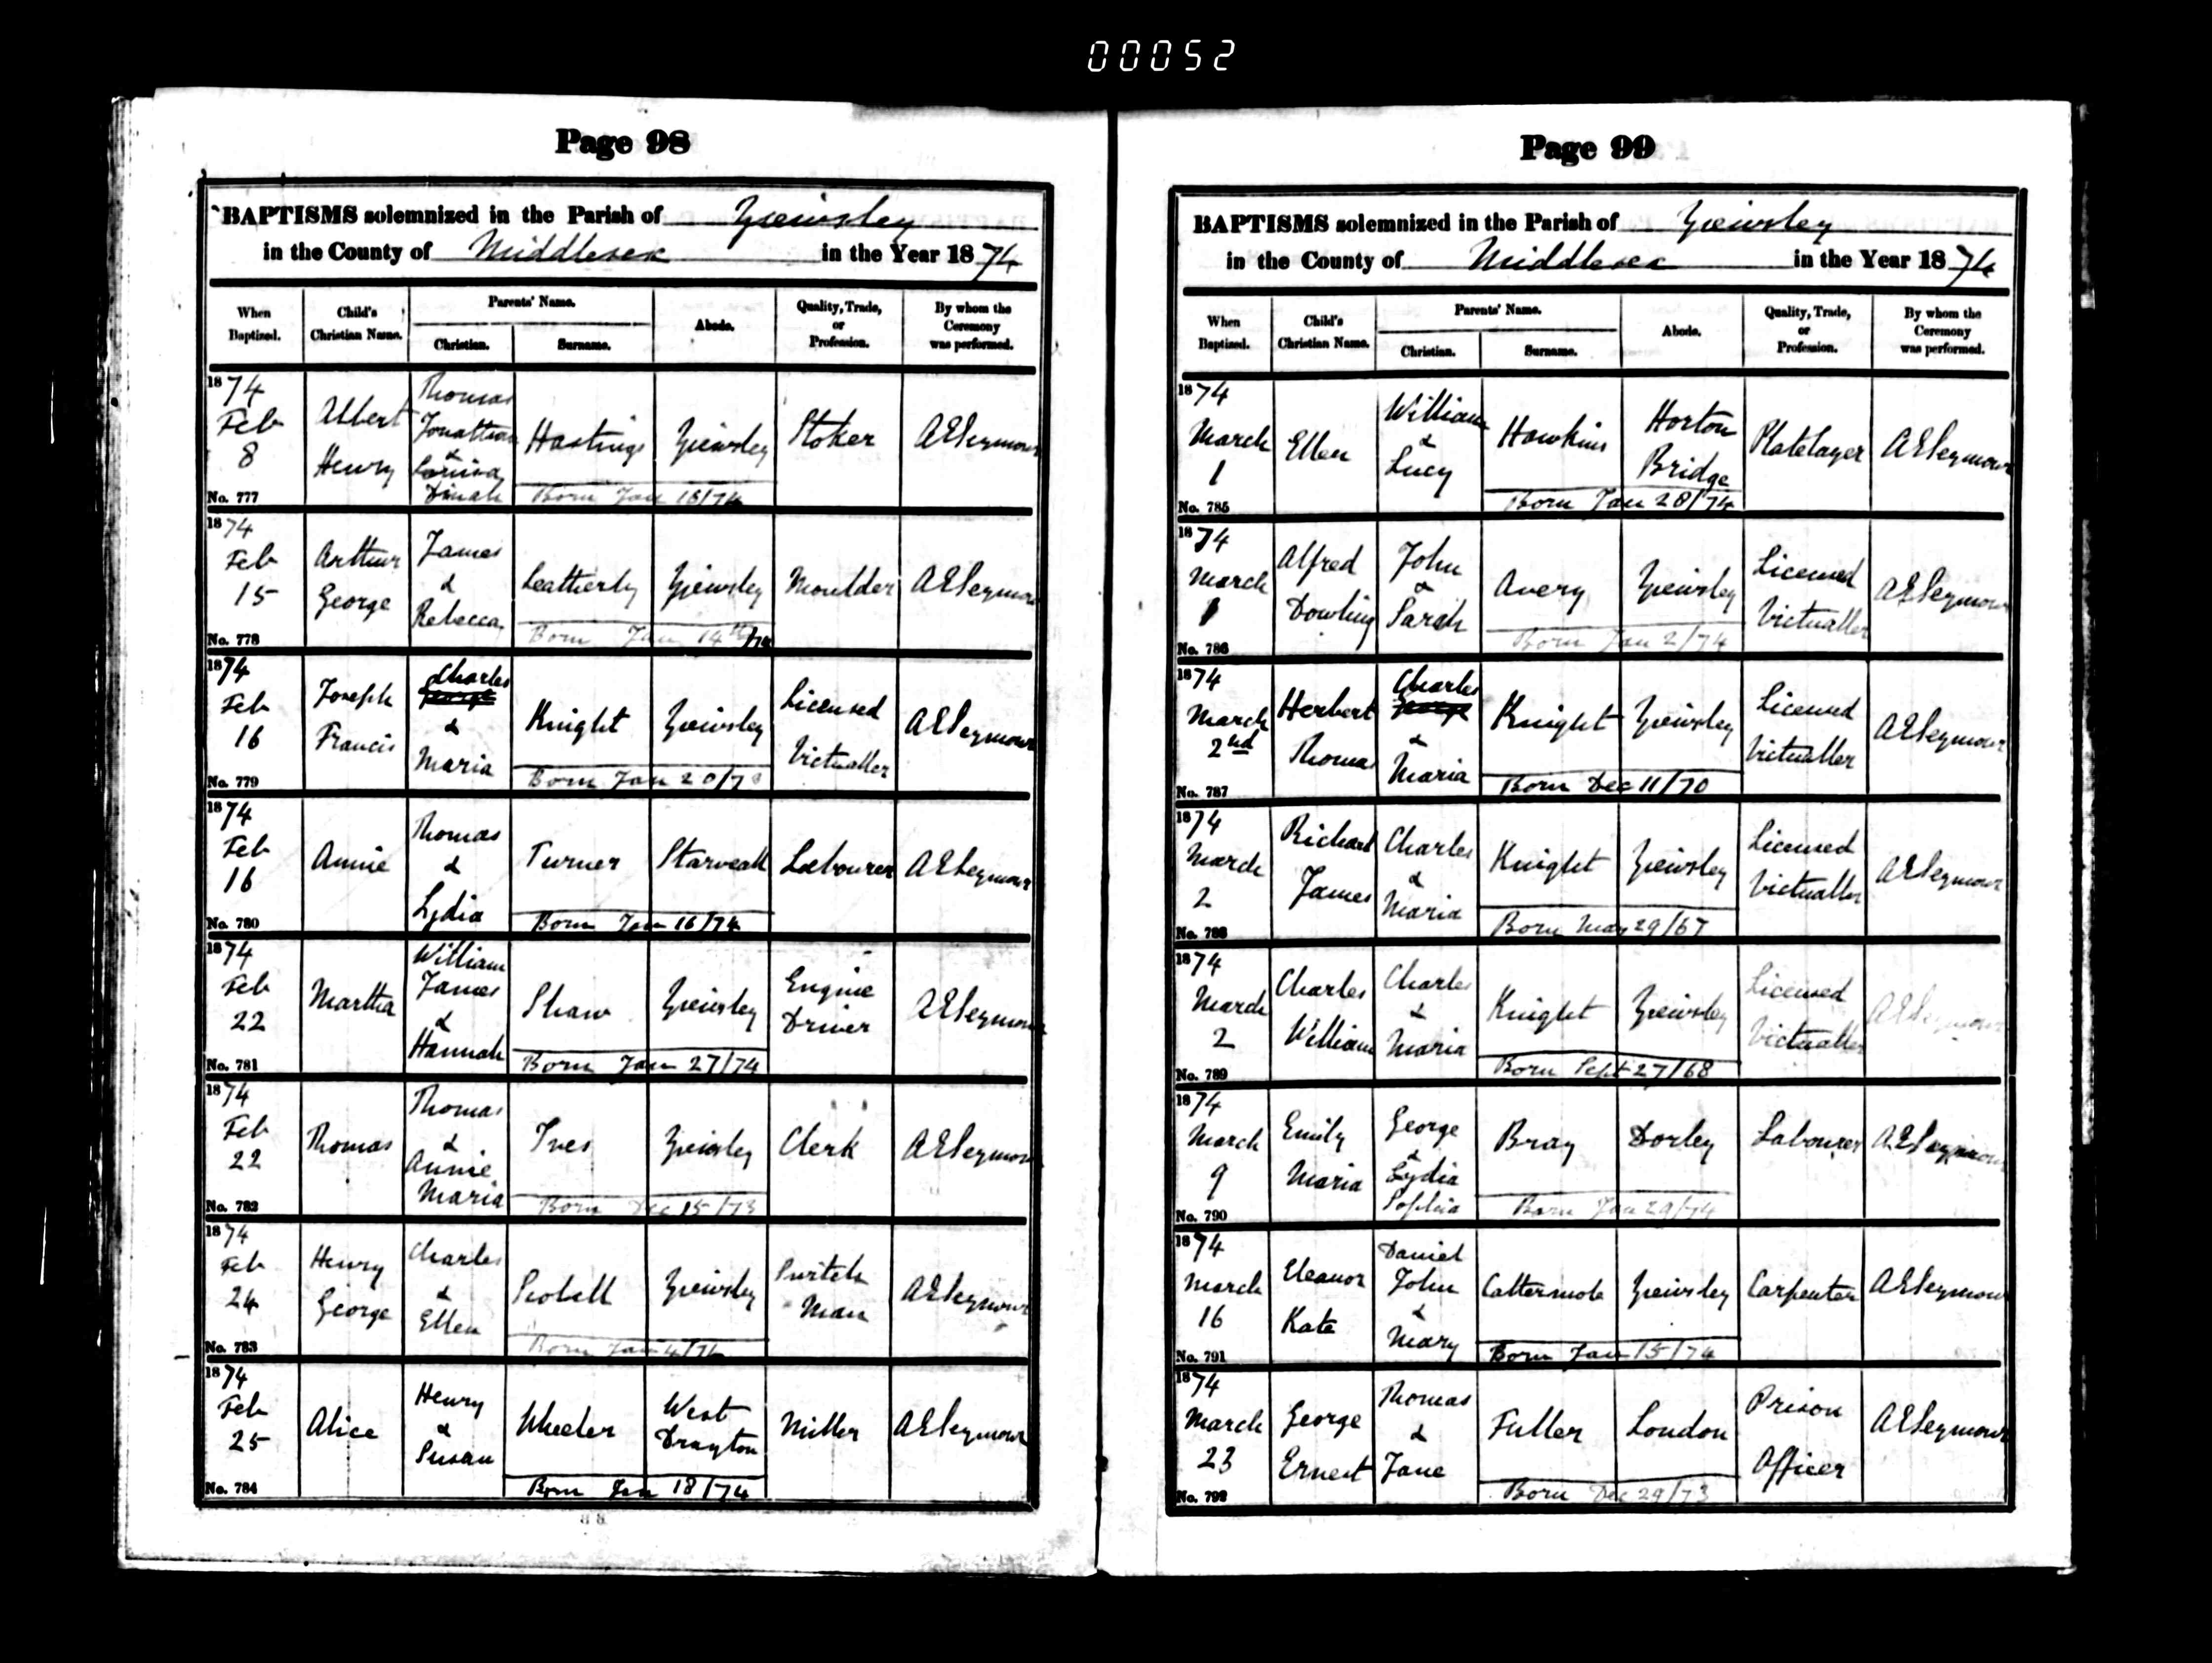 00052
Page 98
BAPTISMS solemnized in the Parish of Yiewsley
in the County of Middlesex in the Year 1874
When Baptized.
Child's Christian Name.
Parents' Name.
Christian.
Surname.
Abode.
Quality, Trade, or Profession.
By whom the Ceremony was performed.
1874 Feb 8
Albert Henry
Thomas Jonathan & Louisa Dinah
Hastings
Yiewsley
Stoker
A E Seymour
No. 777
Born Jan 16/74
1874 Feb 15
Arthur George
James & Rebecca
Leatherly
Yiewsley
Moulder
A E Seymour
No. 778
Born Jan 14th/74
1874 Feb 16
Joseph Francis
Charles & Maria
Knight
Yiewsley
Licensed Victualler
A E Seymour
No. 779
Born Jan 20/73
1874 Feb 16
Annie
Thomas & Lydia
Turner
Starveall
Labourer
A E Seymour
No. 780
Born Jan 16/74
1874 Feb 22
Martha
William James & Hannah
Shaw
Yiewsley
Engine Driver
A E Seymour
No. 781
Born Jan 27/74
1874 Feb 22
Thomas
Thomas & Annie Maria
Ives
Yiewsley
Clerk
A E Seymour
No. 782
Born Dec 15/73
1874 Feb 24
Henry George
Charles & Ellen
Yiewsley
Switch Man
A E Seymour
No. 783
Born Jan 4/74
1874 Feb 25
Alice
Henry & Susan
Wheeler
West Drayton
Miller
A E Seymour
No. 784
Born Jan 18/74
Page 99
BAPTISMS solemnized in the Parish of Yiewsley
in the County of Middlesex in the Year 1874
When Baptized.
Child's Christian Name.
Parents' Name.
Christian.
Surname.
Abode.
Quality, Trade, or Profession.
By whom the Ceremony was performed.
1874 March 1
Ellen
William & Lucy
Hawkins
Horton Bridge
Platelayer
A E Seymour
No. 785
Born Jan 28/74
1874 March 1
Alfred Dowling
John & Sarah
Avery
Yiewsley
Licensed Victualler
A E Seymour
No. 786
Born Jan 2/74
1874 March 2nd
Herbert Thomas
Charles & Maria
Knight
Yiewsley
Licensed Victualler
A E Seymour
No. 787
Born Dec 11/70
1874 March 2
Richard James
Charles & Maria
Knight
Yiewsley
Licensed Victualler
A E Seymour
No. 788
Born May 29/67
1874 March 2
Charles William
Charles & Maria
Knight
Yiewsley
Licensed Victualler
A E Seymour
No. 789
Born Sept 27/68
1874 March 9
Emily Maria
George & Lydia Sophia
Bray
Dorley
Labourer
A E Seymour
No. 790
Born Jan 29/74
1874 March 16
Eleanor Kate
Daniel John & Mary
Cattermole
Yiewsley
Carpenter
A E Seymour
No. 791
Born Jan 15/74
1874 March 23
George Ernest
Thomas & Jane
Fuller
London
Prison Officer
A E Seymour
No. 792
Born Dec 29/73